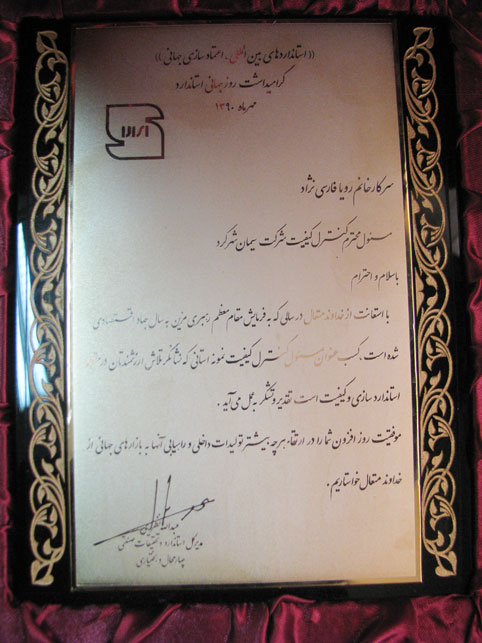 (( استانداردهای بین المللی ، اعتماد سازی جهانی ))
گرامیداشت روز جهانی استاندارد
مهرماه ۱۳۹۰
سرکار خانم رویا فارسی نژاد
مسئول محترم کنترل کیفیت شرکت سیمان شهرکرد
باسلام و احترام
با استعانت از خداوند متعال در سالی که به فرمایش مقام معظم رهبری مزین به سال جهاد اقتصادی
شده است ، کسب عنوان مسئول کنترل کیفیت نمونه استانی که نشانگر تلاش ارزشمندتان در
استاندارد سازی و کیفیت است تقدیر و تشکر به عمل می آید .
موفقیت روز افزون شما را در ارتقاء هرچه بیشتر تولیدات داخلی و راهیابی آنها به بازارهای جهانی از
خداوند متعال خواستاریم .
عبدالله
مدیرکل استاندارد و تحقیقات صنعتی
چهارمحال و بختیاری